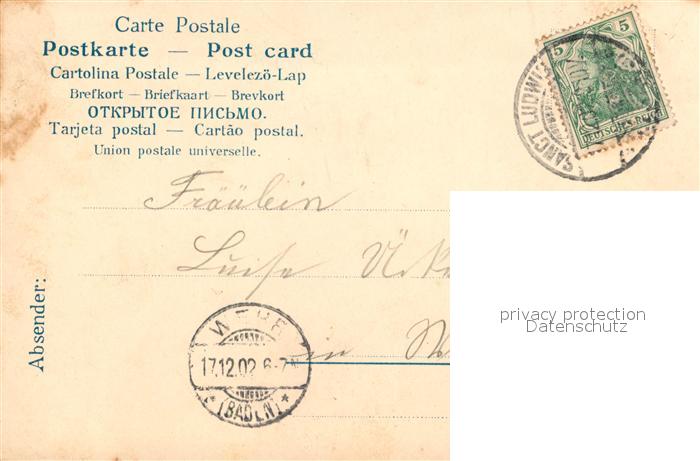 Carte Postale
Postkarte — Post card
Cartolina Postale — Levelező-Lap
Brefkort — Briefkaart — Brevkort
ОТКРЫТОЕ ПИСЬМО.
Tarjeta postal — Cartão postal.
Union postale universelle.
5 5
DEUTSCHES REICH
SANCT LUDWIG
Fräulein
Luise
in
Absender:
WEHR
17.12.02 6-7N
* (BADEN) *
privacy protection
Datenschutz